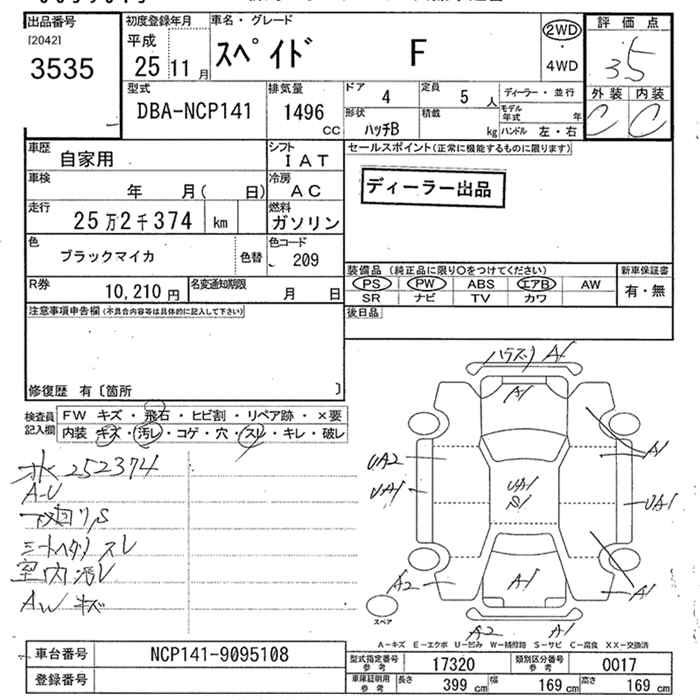 出品番号 初度登録年月 車名・グレード 評価点
[2042] 平成 スペイド F 2WD
3535 25 11月 ・ 4WD 3.5
型式 排気量 ドア 4 定員 5人 ディーラー・並行 外装 内装
DBA-NCP141 1496 cc 形状 ハッチB 積載 kg モデル年式 年 C C
ハンドル 左・右
車歴 自家用 シフト IAT セールスポイント(正常に機能するものに限ります)
車検 年 月( 日) 冷房 AC ディーラー出品
走行 25万2千374 km 燃料 ガソリン
色 ブラックマイカ 色替 色コード 209
装備品(純正品に限り○をつけてください) 新車保証書
R券 10,210円 名変通知期限 月 日 PS PW ABS エアB AW 有・無
SR ナビ TV カワ
注意事項申告欄(不具合内容等は具体的に記入して下さい) 後日品
修復歴 有〔箇所 〕
検査員記入欄 FW キズ・飛石・ヒビ割・リペア跡・×要
内装 キズ・汚レ・コゲ・穴・スレ・キレ・破レ
252374
A-U
S
スレ
室内汚レ
AW キズ
A1
A1
A1
UA2
UA1 UA1 UA1
S1
A2 A1 A1
スペア A2 A1
A-キズ E-エクボ U-凹み W-補修跡 S-サビ C-腐食 XX-交換済
車台番号 NCP141-9095108 型式指定番号 参考 17320 類別区分番号 参考 0017
登録番号 車庫証明用 参考 長さ 399cm 幅 169cm 高さ 169cm